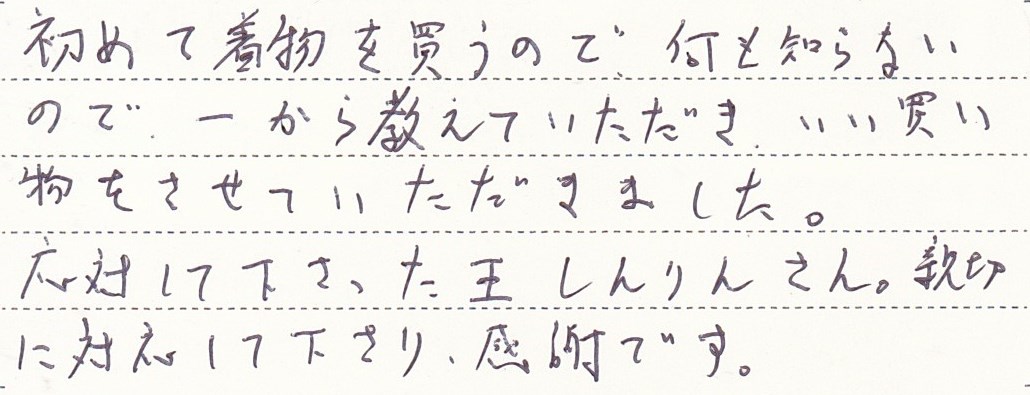 初めて着物を買うので、何も知らない
ので、一から教えていただき、いい買い
物をさせていただきました。
応対して下さった王しんりんさん。親切
に対応して下さり、感謝です。